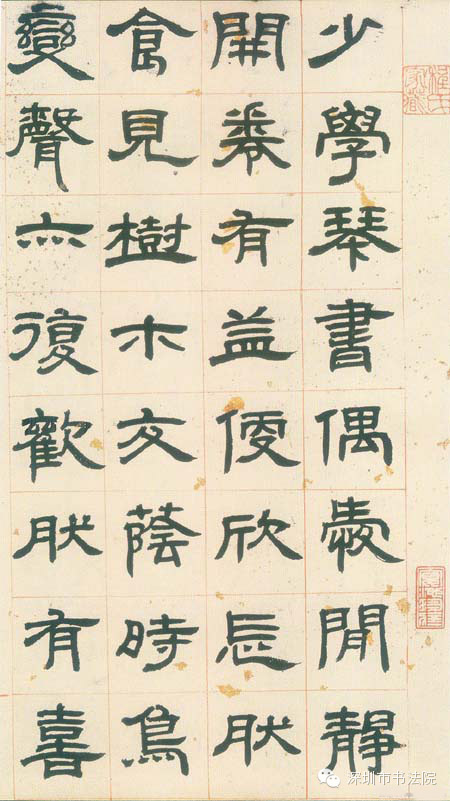 少學琴書偶愛閒靜
開卷有益便欣忘肰
食見樹木交蔭時鳥
變聲亦復歡肰有喜
深圳市书法院